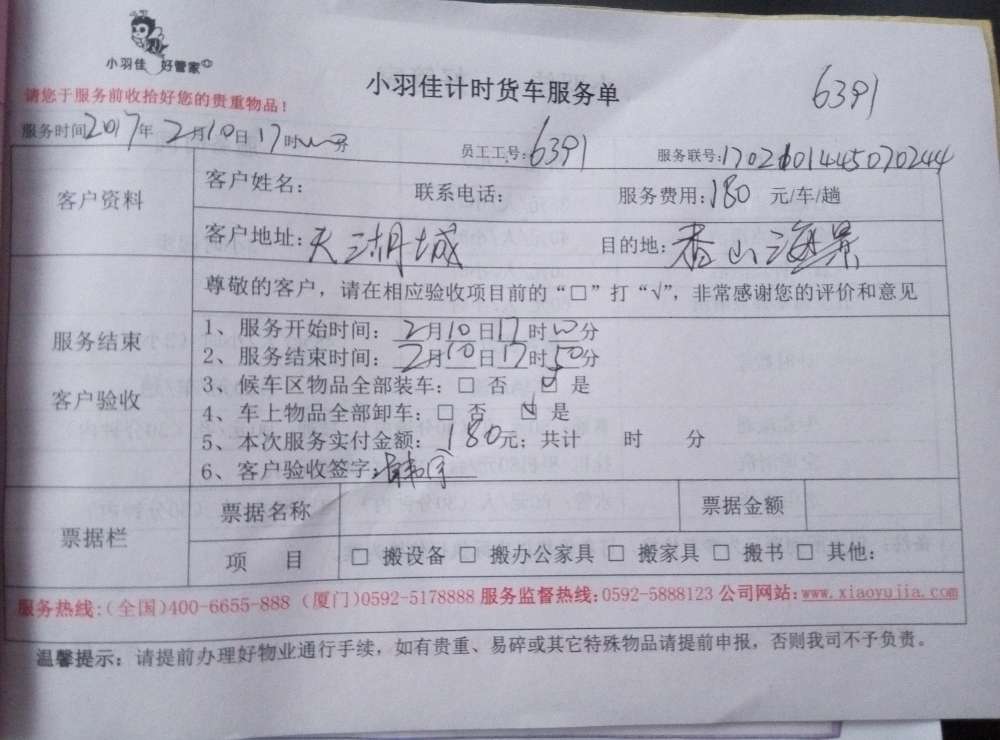 小羽佳 好管家
请您于服务前收拾好您的贵重物品！
小羽佳计时货车服务单
6391
服务时间2017年2月10日17时00分
员工工号：6391
服务联号：
客户资料
客户姓名：
联系电话：
服务费用：180 元/车/趟
客户地址：天湖城
目的地：香山海景
尊敬的客户，请在相应验收项目前的“□”打“√”，非常感谢您的评价和意见
服务结束
客户验收
1、服务开始时间：2月10日17时00分
2、服务结束时间：2月10日17时50分
3、候车区物品全部装车：□ 否 ☑ 是
4、车上物品全部卸车：□ 否 ☑ 是
5、本次服务实付金额：180元；共计 时 分
6、客户验收签字：韩宇
票据栏
票据名称
票据金额
项 目
□ 搬设备 □ 搬办公家具 □ 搬家具 □ 搬书 □ 其他：
服务热线：（全国）400-6655-888（厦门）0592-5178888 服务监督热线：0592-5888123 公司网站：www.xiaoyujia.com
温馨提示：请提前办理好物业通行手续，如有贵重、易碎或其它特殊物品请提前申报，否则我司不予负责。